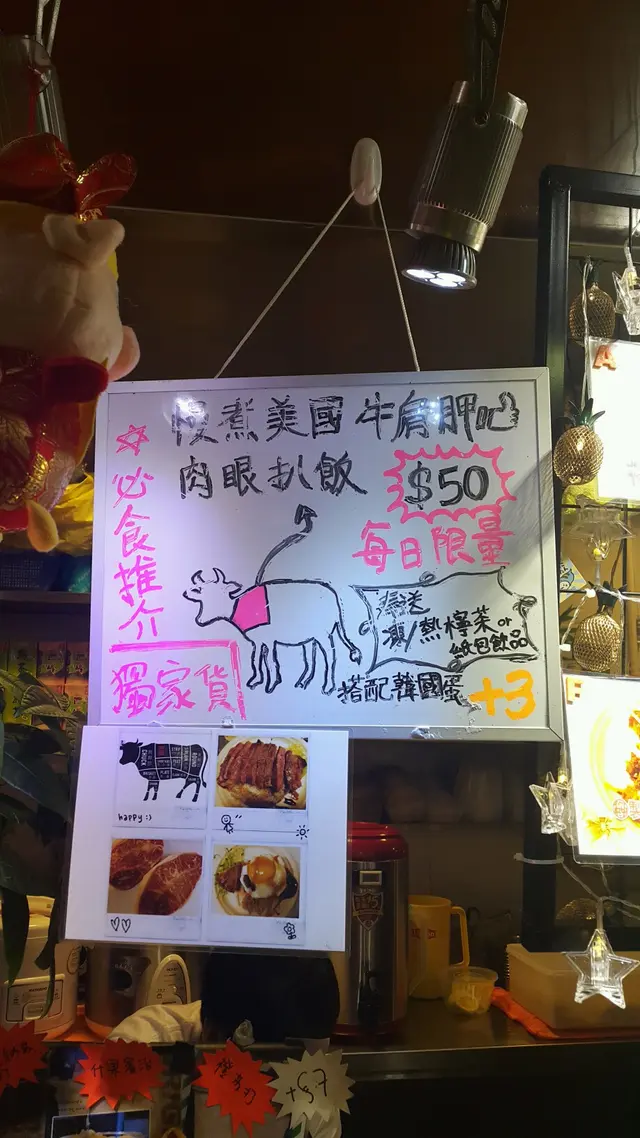 慢煮美國牛肩胛
肉眼扒飯
$50
每日限量
☆必食推介
獨家貨
送
凍/熱檸茶or
紙包飲品
搭配韓國蛋+3
CHUCK
happy :)
A
F
什果賓治
+$7